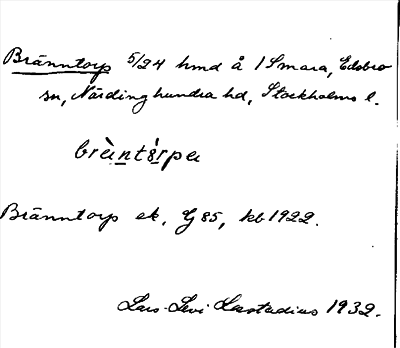 Bränntorp 5/24 hmd å 1 Smara, Edsbro
sn, Närdinghundra hd, Stockholms l.
bràntórpa
Bränntorp ek, G 85, kb 1922.
Lars-Levi Læstadius 1932.